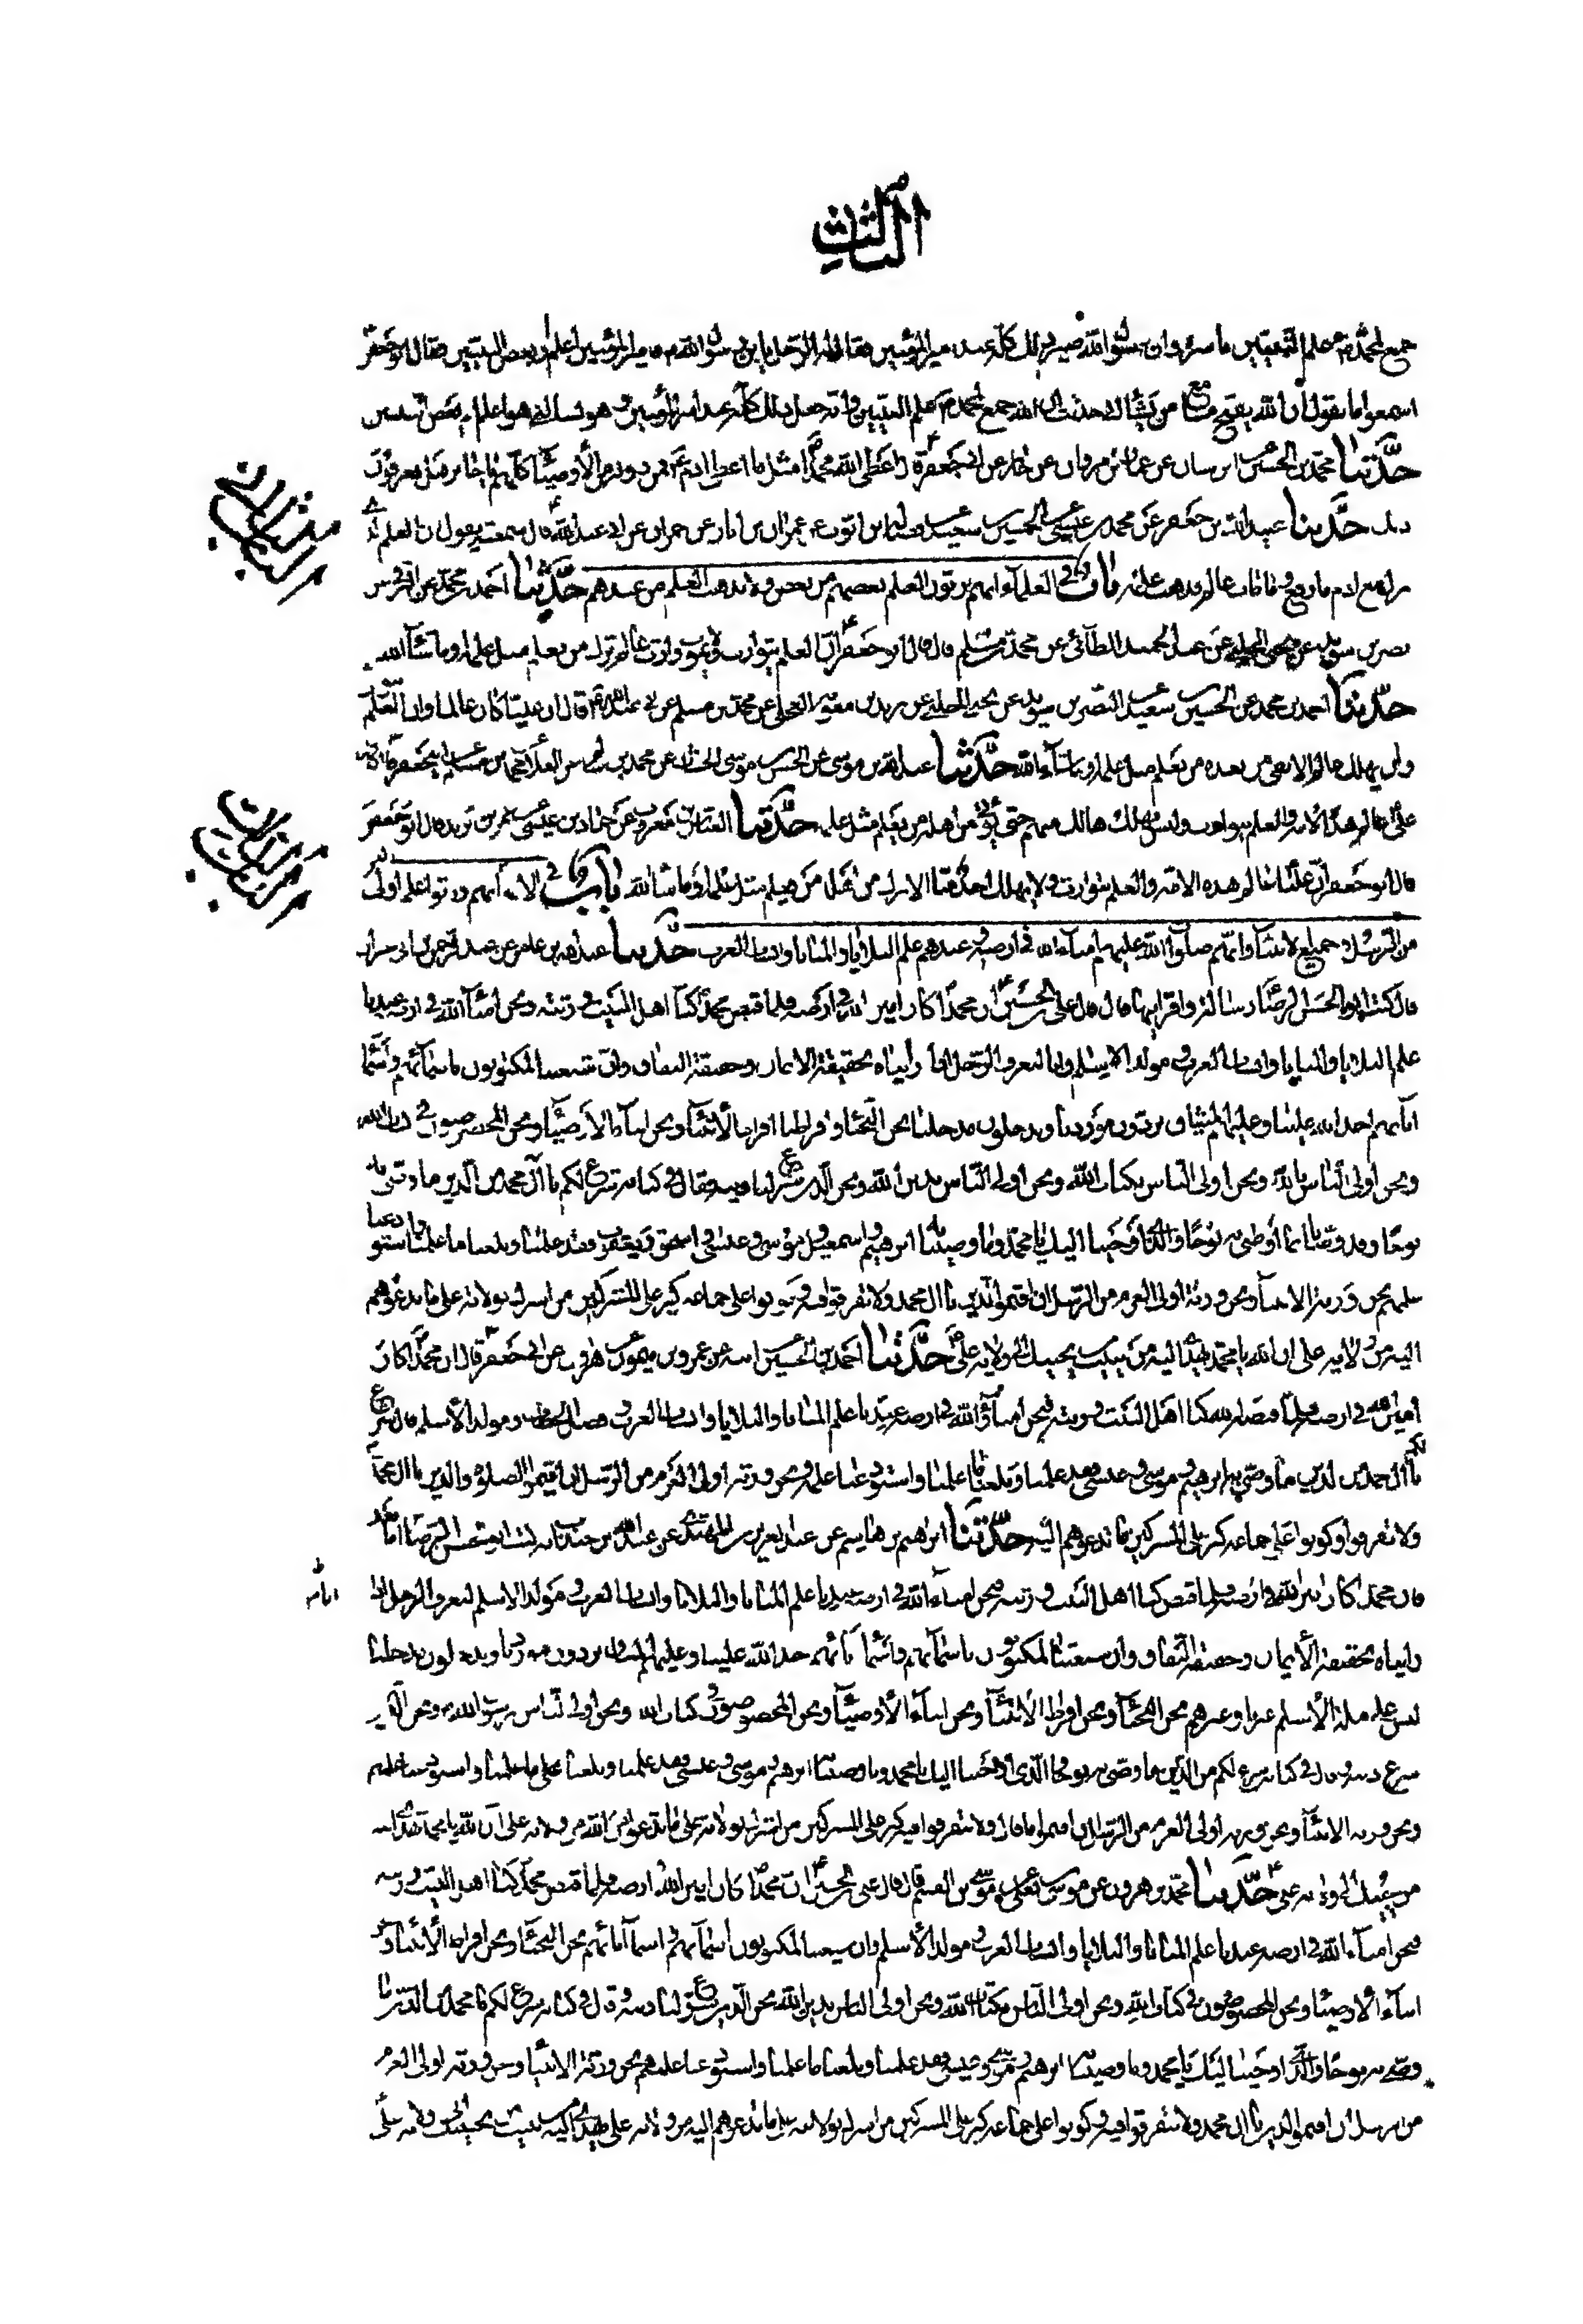 الثالث
جمع لمحمد علم النبيين باسره وان رسول الله صير ذلك كله عند امير المؤمنين فقال له الرجل يابن رسول الله فامير المؤمنين اعلم او بعض النبيين فقال ابو جعفر
اسمعوا ما يقول ان الله يفتح مسامع من يشاء اني حدثت ان الله جمع لمحمد علم النبيين وانه جعل ذلك كله عند امير المؤمنين وهو يسالني هو اعلم ام بعض النبيين
حدثنا محمد بن الحسين ابن سنان عن عمار بن مروان عن جابر عن ابي جعفر اعطى الله محمدا مثل ما اعطى ادم فمن دونه من الأوصياء كلهم يا جابر هل يعرفون
ذلك حدثنا عبد الله بن جعفر عن محمد بن عيسى الحسين سعيد عن عمران بن ابان عن حمران عن ابي عبد الله قال سمعته يقول ان العلم
نزل مع ادم ما رفع وما مات عالم فذهب علمه باب في العلماء انهم يرثون العلم بعضهم من بعض ولا يذهب العلم من عندهم حدثنا احمد بن محمد عن
نصر بن سويد عن يحيى الحلبي عن عبد الحميد الطائي عن محمد بن مسلم قال قال ابو جعفر ان العلم يتوارث ولا يموت عالم الا ترك من يعلم مثل علمه او ما شاء الله
حدثنا احمد بن محمد عن الحسين سعيد النضر بن سويد عن يحيى الحلبي عن بريد بن معوية العجلي عن محمد بن مسلم عن ابي عبد الله قال ان عليا كان عالما وان العلم
ولن يهلك عالم الا بقي من بعده من يعلم مثل علمه او ما شاء الله حدثنا عبد الله بن موسى عن الحسن موسى الخشاب عن محمد بن مسلم ابي جعفر
علي عالم هذه الامة والعلم يتوارث وليس يهلك هالك منهم حتى يؤتى من اهله من يعلم مثل علمه حدثنا العباس معروف عن حماد بن عيسى عن عمر بن يزيد قال ابو جعفر
قال ابو جعفر ان عليا عالم هذه الامة والعلم يتوارث ولا يهلك احد منا الا ترك من اهله من يعلم مثل علمه او ما شاء الله باب في الائمة انهم ورثوا علم اولي
من الرسل وجميع الانبياء وانهم صلوات الله عليهم امناء الله في ارضه وعندهم علم البلايا والمنايا وانساب العرب حدثنا عبد الله بن عامر عن عبد الرحمن بن ابي نجران
قال كتب ابو الحسن الرضا رسالة واقرانيها قال قال علي الحسين ان محمدا كان امين الله في ارضه فلما قبض محمد كنا اهل البيت ورثته ونحن امناء الله في ارضه عندنا
علم البلايا والمنايا وانساب العرب ومولد الاسلام وانا لنعرف الرجل اذا رأيناه بحقيقة الايمان وحقيقة النفاق وان شيعتنا المكتوبون باسمائهم واسماء
ابائهم اخذ الله علينا وعليهم الميثاق يردون موردنا ويدخلون مدخلنا نحن النجباء وافراطنا افراط الأنبياء ونحن ابناء الأوصياء ونحن المخصوصون في كتاب الله
ونحن اولى الناس بالله ونحن اولى الناس بكتاب الله ونحن اولى الناس بدين الله ونحن الذين شرع لنا دينه فقال في كتابه شرع لكم يا آل محمد من الدين ما وصى به
نوحا وقد وصانا بما أوصى به نوحا والذي أوحينا اليك يا محمد وما وصينا به ابرهيم واسمعيل وموسى وعيسى واسحق ويعقوب فقد علمنا وبلغنا ما علمنا واستودعنا
علمهم نحن ورثة الانبياء ونحن ورثة اولى العزم من الرسل ان اقيموا الدين يا آل محمد ولا تفرقوا فيه وكونوا على جماعه كبر على المشركين من اشرك بولاية علي ما تدعوهم
اليه من ولاية علي ان الله يا محمد يهدي اليه من ينيب يجيبك الى ولاية علي حدثنا احمد بن الحسين ابيه عن عمرو بن ميمون عن ابي جعفر قال ان محمدا كان
امين الله في ارضه فلما قبضه الله كنا اهل البيت ورثته فنحن امناء الله في ارضه عندنا علم المنايا والبلايا وانساب العرب وفصل الخطاب ومولد الأسلم قال شرع
لكم يا آل محمد من الدين ما وصى به ابرهيم وموسى وعيسى فقد علمنا وبلغنا ما علمنا واستودعنا علمه ونحن ورثه اولى العزم من الرسل ان اقيموا الصلوة والدين يا آل محمد
ولا تفرقوا وكونوا على جماعه كبر على المشركين ما تدعوهم اليه حدثنا ابرهيم بن هاشم عن عبد العزيز بن المهتدي عن عبد الله بن جندب انه كتب اليه ابو الحسن الرضا اما بعد
فان محمدا كان امين الله في ارضه فلما قبض كنا اهل البيت ورثته فنحن امناء الله في ارضه عندنا علم المنايا والبلايا وانساب العرب ومولد الاسلم لنعرف الرجل اذا
رايناه بحقيقة الأيمان وحقيقة النفاق وان شيعتنا المكتوبون باسمائهم واسماء ابائهم اخذ الله علينا وعليهم الميثاق يردون موردنا ويدخلون مدخلنا
ليس على ملة الأسلم غيرنا وغيرهم نحن النجباء ونحن افراط الأنبياء ونحن ابناء الأوصياء ونحن المخصوصون في كتاب الله ونحن اولى الناس برسول الله ونحن الذين
شرع دينه وقال في كتابه شرع لكم من الدين ما وصى به نوحا والذي اوحينا اليك يا محمد وما وصينا به ابرهيم وموسى وعيسى فقد علمنا وبلغنا على ما علمنا واستودعنا علمهم
ونحن ورثه الانبياء ونحن ورثه اولى العزم من الرسل ان اقيموا ولا تفرقوا فيه كبر على المشركين من اشرك بولاية علي ما تدعوهم اليه من ولاية علي ان الله يا محمد يهدي اليه
من يجيبك الى ولاية علي حدثنا محمد بن هرون عن موسى يعلى عن موسى بن القسم قال قال علي الحسين ان محمدا كان امين الله ارضه فلما قبض محمد كنا اهل البيت ورثته
فنحن امناء الله في ارضه عندنا علم المنايا والبلايا وانساب العرب ومولد الأسلم وان شيعتنا المكتوبون اسمائهم واسماء ابائهم نحن النجباء ونحن افراط الأنبياء ونحن
ابناء الأوصياء ونحن المخصوصون في كتاب الله ونحن اولى الناس بكتاب الله ونحن اولى الناس بدين الله نحن الذين شرع لنا دينه وقال في كتابه شرع لكم يا محمد من الدين ما
وصى به نوحا والذي اوحينا اليك يا محمد وما وصينا به ابرهيم وموسى وعيسى فقد علمنا وبلغنا ما علمنا واستودعنا علمهم نحن ورثة الانبياء ونحن ورثه اولى العزم
من الرسل ان اقيموا الدين يا آل محمد ولا تفرقوا فيه وكونوا على جماعه كبر على المشركين من اشرك بولايه علي ما تدعوهم اليه من ولايه علي يهدي اليه من ينيب يجيبك الى ولايه علي